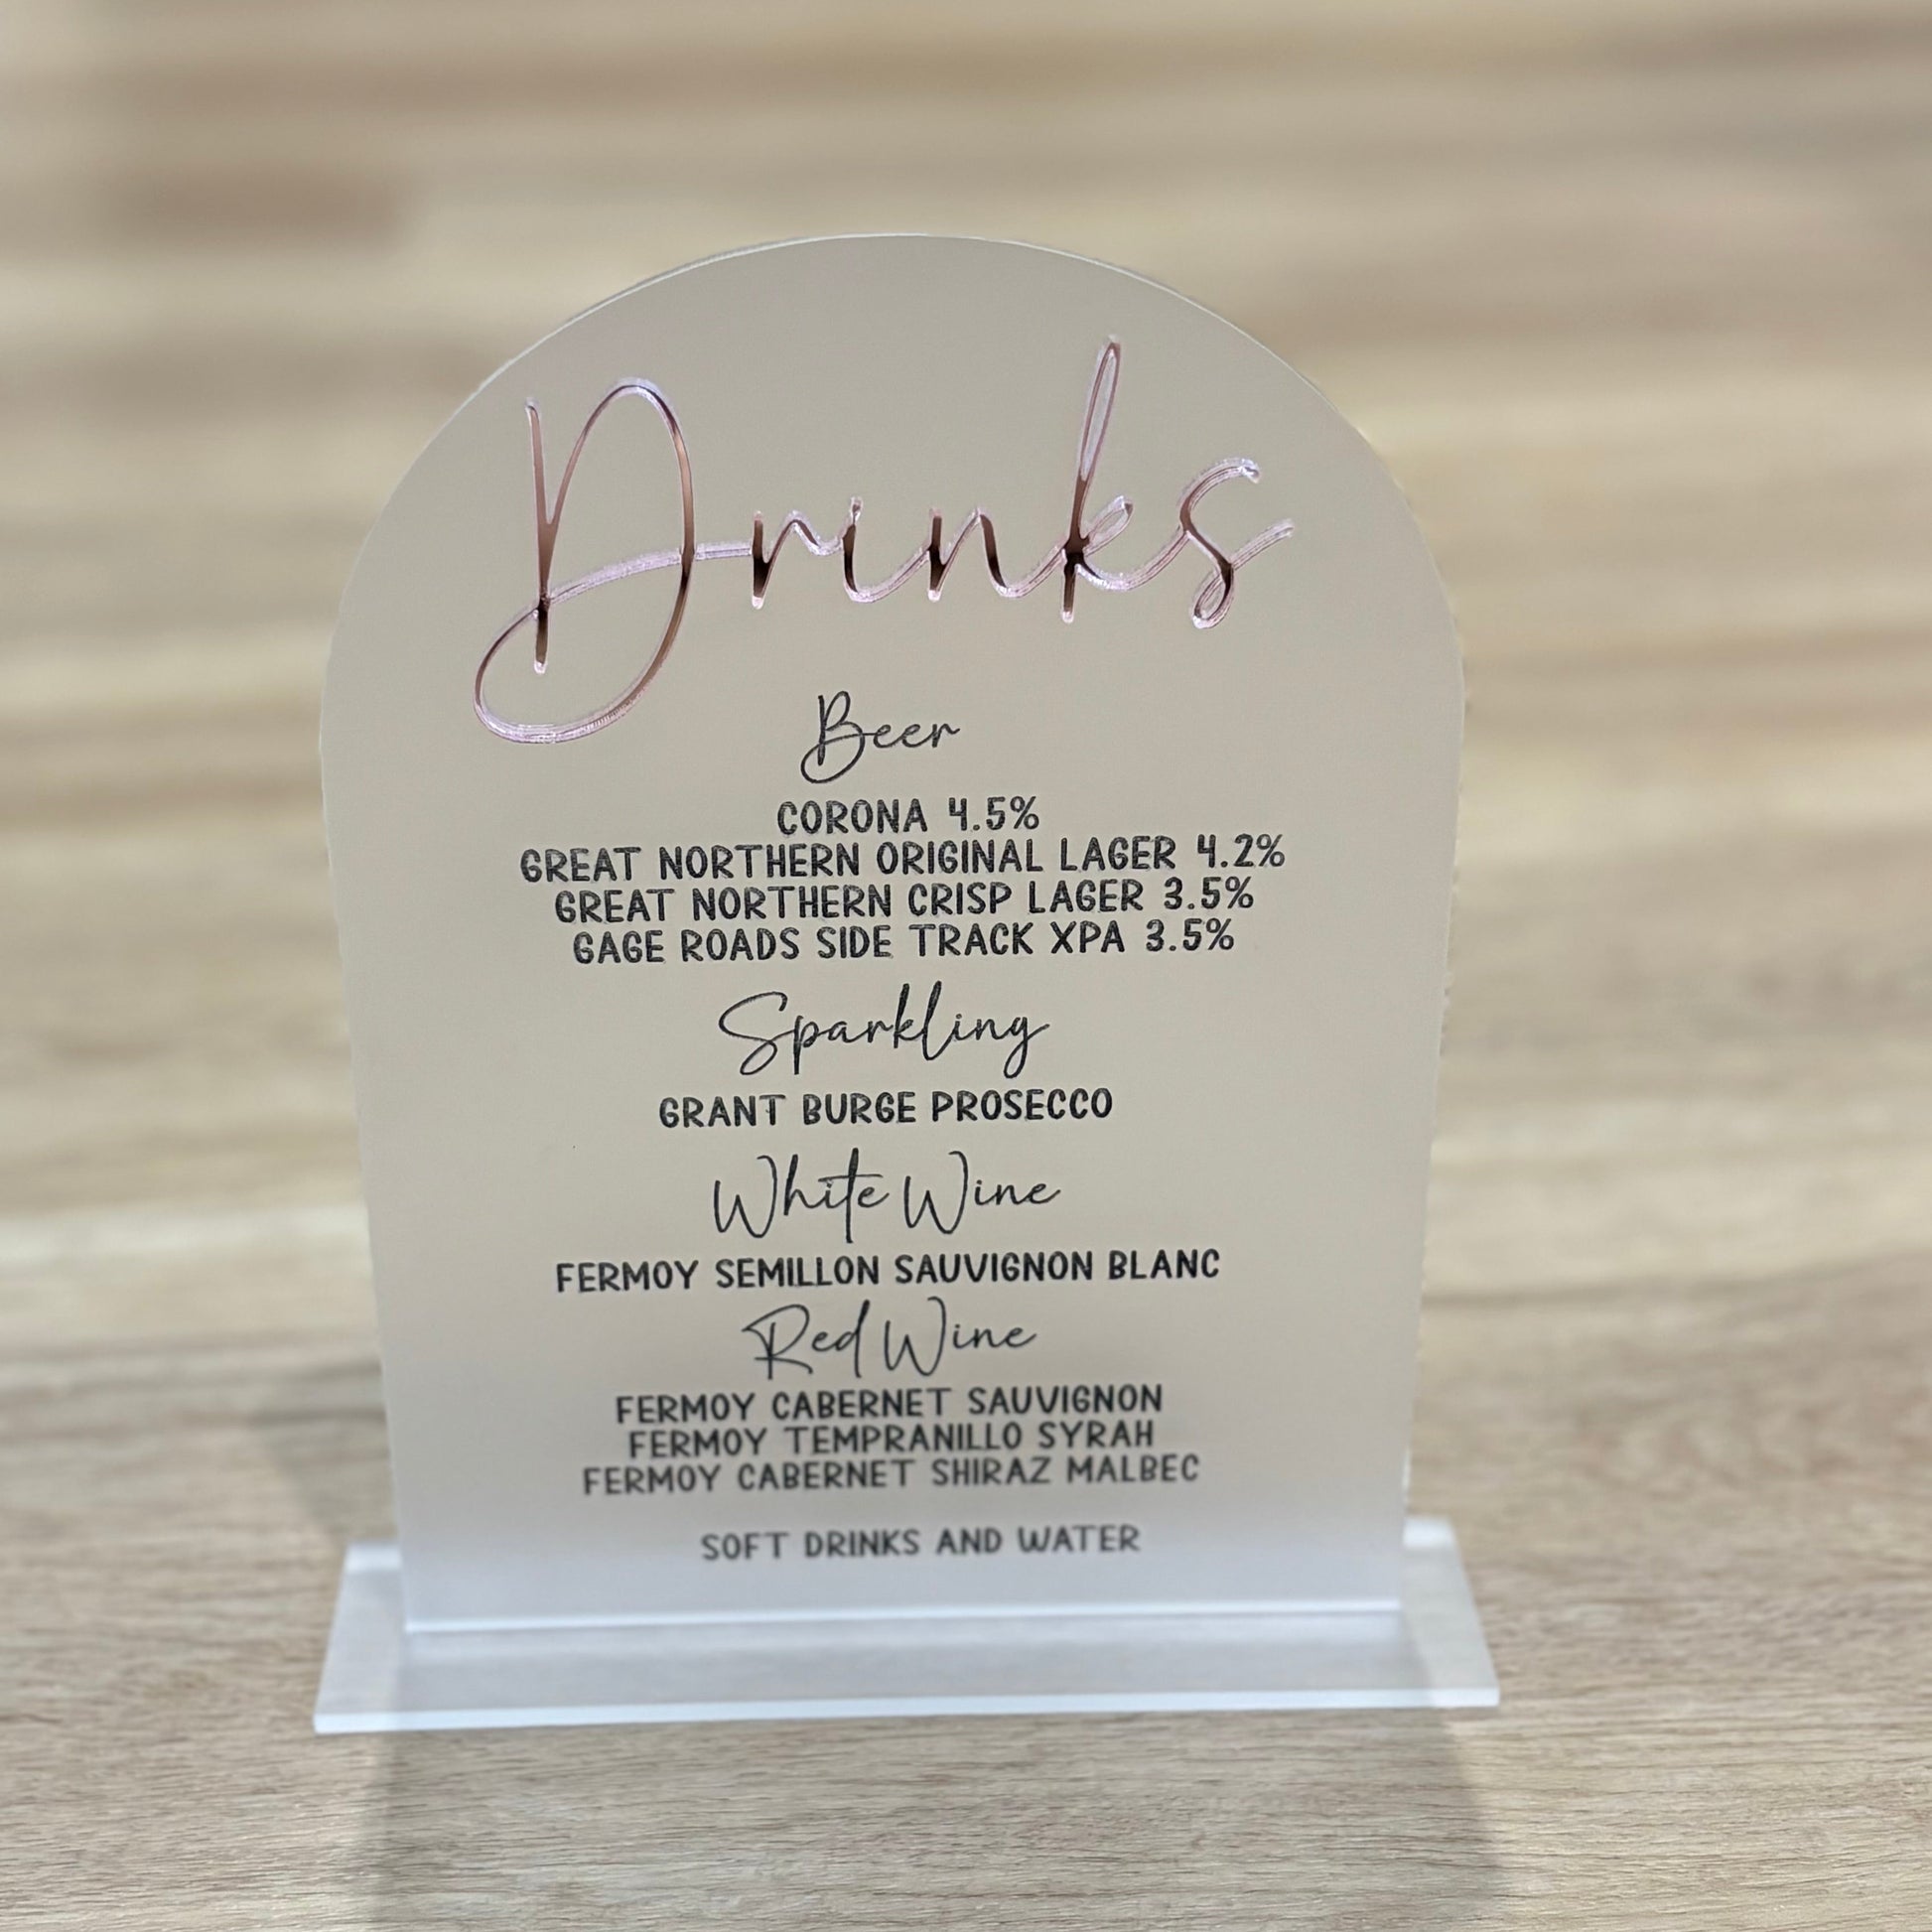 Drinks
Beer
CORONA 4.5%
GREAT NORTHERN ORIGINAL LAGER 4.2%
GREAT NORTHERN CRISP LAGER 3.5%
GAGE ROADS SIDE TRACK XPA 3.5%
Sparkling
GRANT BURGE PROSECCO
White Wine
FERMOY SEMILLON SAUVIGNON BLANC
Red Wine
FERMOY CABERNET SAUVIGNON
FERMOY TEMPRANILLO SYRAH
FERMOY CABERNET SHIRAZ MALBEC
SOFT DRINKS AND WATER